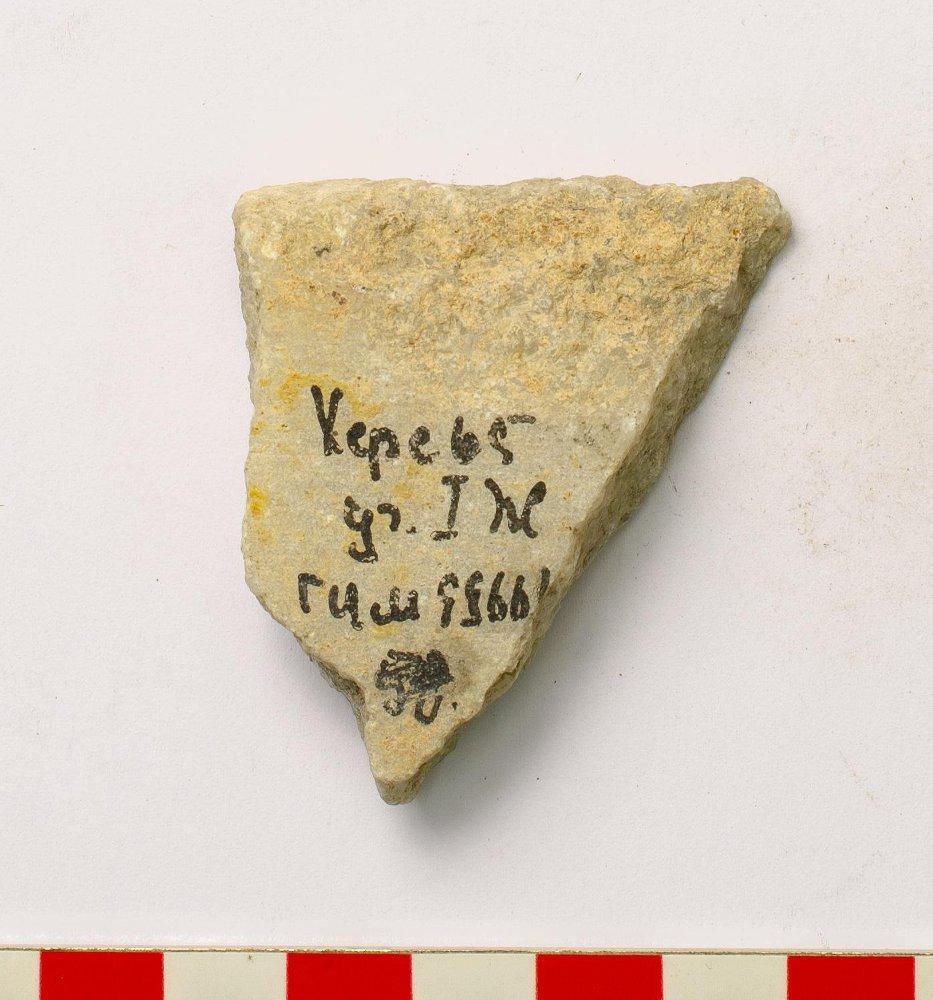 Херс 65
уч. I Ж
ГИМ 99566